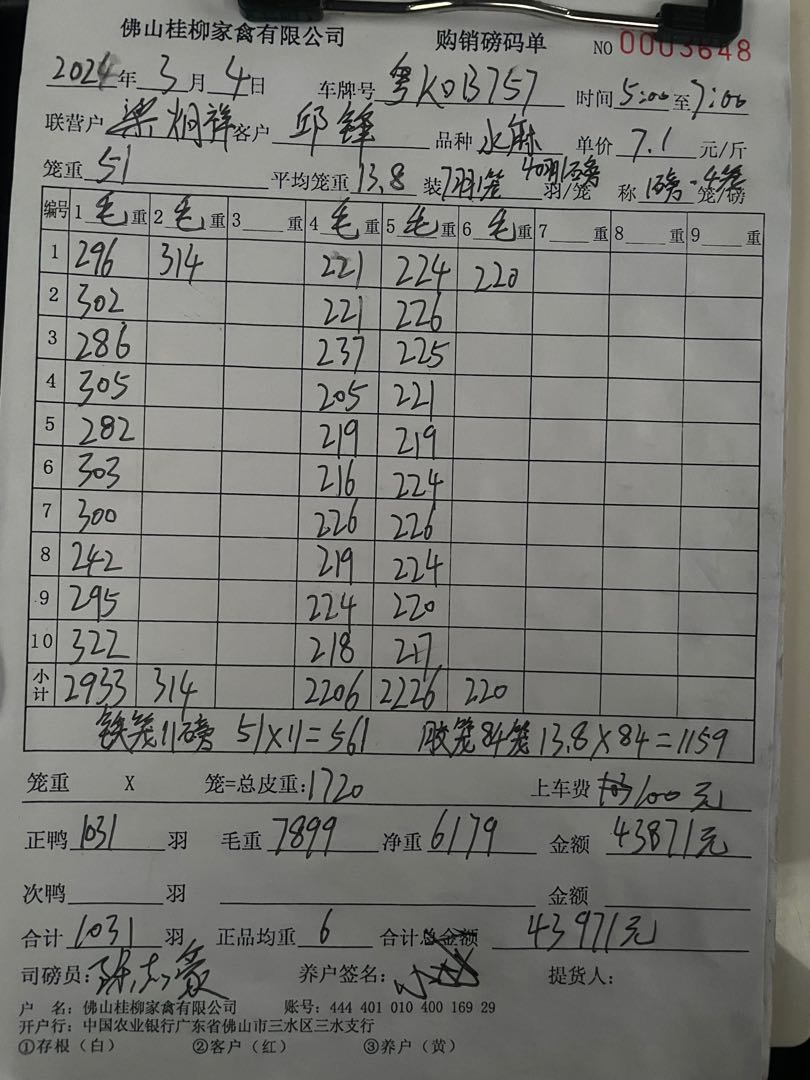 佛山桂柳家禽有限公司 购销磅码单 NO 0003648
2024年3月4日 车牌号 粤K0B757 时间5:00至7:00
联营户 梁炯祥 客户 邱锋 品种 水麻 单价 7.1 元/斤
笼重 51 平均笼重 13.8 装 7羽1笼 40羽1磅 羽/笼 称 1磅-4笼 笼/磅
编号 1 毛 重 2 毛 重 3 重 4 毛 重 5 毛 重 6 毛 重 7 重 8 重 9 重
1 296 314 221 224 220
2 302 221 226
3 286 237 225
4 305 205 221
5 282 219 219
6 303 216 224
7 300 226 226
8 242 219 224
9 295 224 220
10 322 218 217
小计 2933 314 2206 2226 220
铁笼11磅 51×11=561 胶笼84笼 13.8×84=1159
笼重 X 笼=总皮重:1720 上车费 100元
正鸭 1031 羽 毛重 7899 净重 6179 金额 43871元
次鸭 羽 金额
合计 1031 羽 正品均重 6 合计总金额 43971元
司磅员: 养户签名: 提货人:
户 名: 佛山桂柳家禽有限公司 账号: 444 401 010 400 169 29
开户行: 中国农业银行广东省佛山市三水区三水支行
①存根(白) ②客户(红) ③养户(黄)